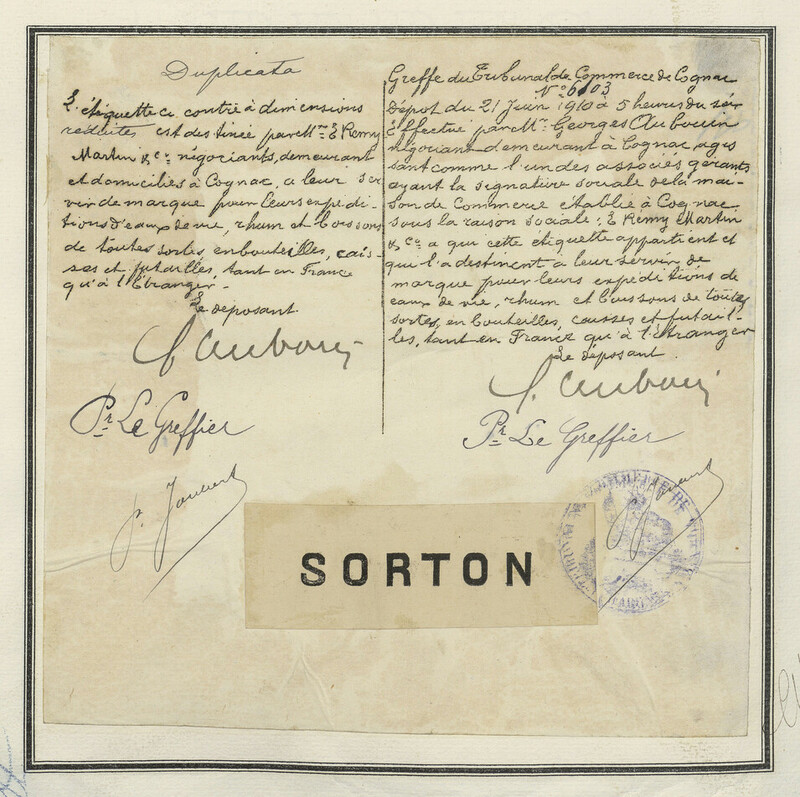 Duplicata
L'étiquette ci contre à dimensions
réduites est destinée par Mrs E. Remy
Martin & Co négociants, demeurant
et domiciliés à Cognac, a leur ser
vir de marque pour leurs expédi
tions d'eaux de vie, rhum et boissons
de toutes sortes, en bouteilles, cais-
ses et futailles, tant en France
qu'à l'Etranger.
Le déposant.
G. Aubouin
Pr Le Greffier
Greffe du Tribunal de Commerce de Cognac
No 6103
Dépot du 21 Juin 1910 à 5 heures du soir
Effectué par Mr Georges Aubouin
négociant demeurant à Cognac, agis
sant comme l'un des associés gérants
ayant la signature sociale de la mai-
son de Commerce établie à Cognac
sous la raison sociale: E. Rémy Martin
& Co a qui cette étiquette appartient et
qui l'a destinent à leur servir de
marque pour leurs expéditions de
eaux de vie, rhum et boissons de toutes
sortes, en bouteilles, caisses et futail-
les, tant en France qu'à l'étranger
Le déposant.
G. Aubouin
Pr Le Greffier
SORTON